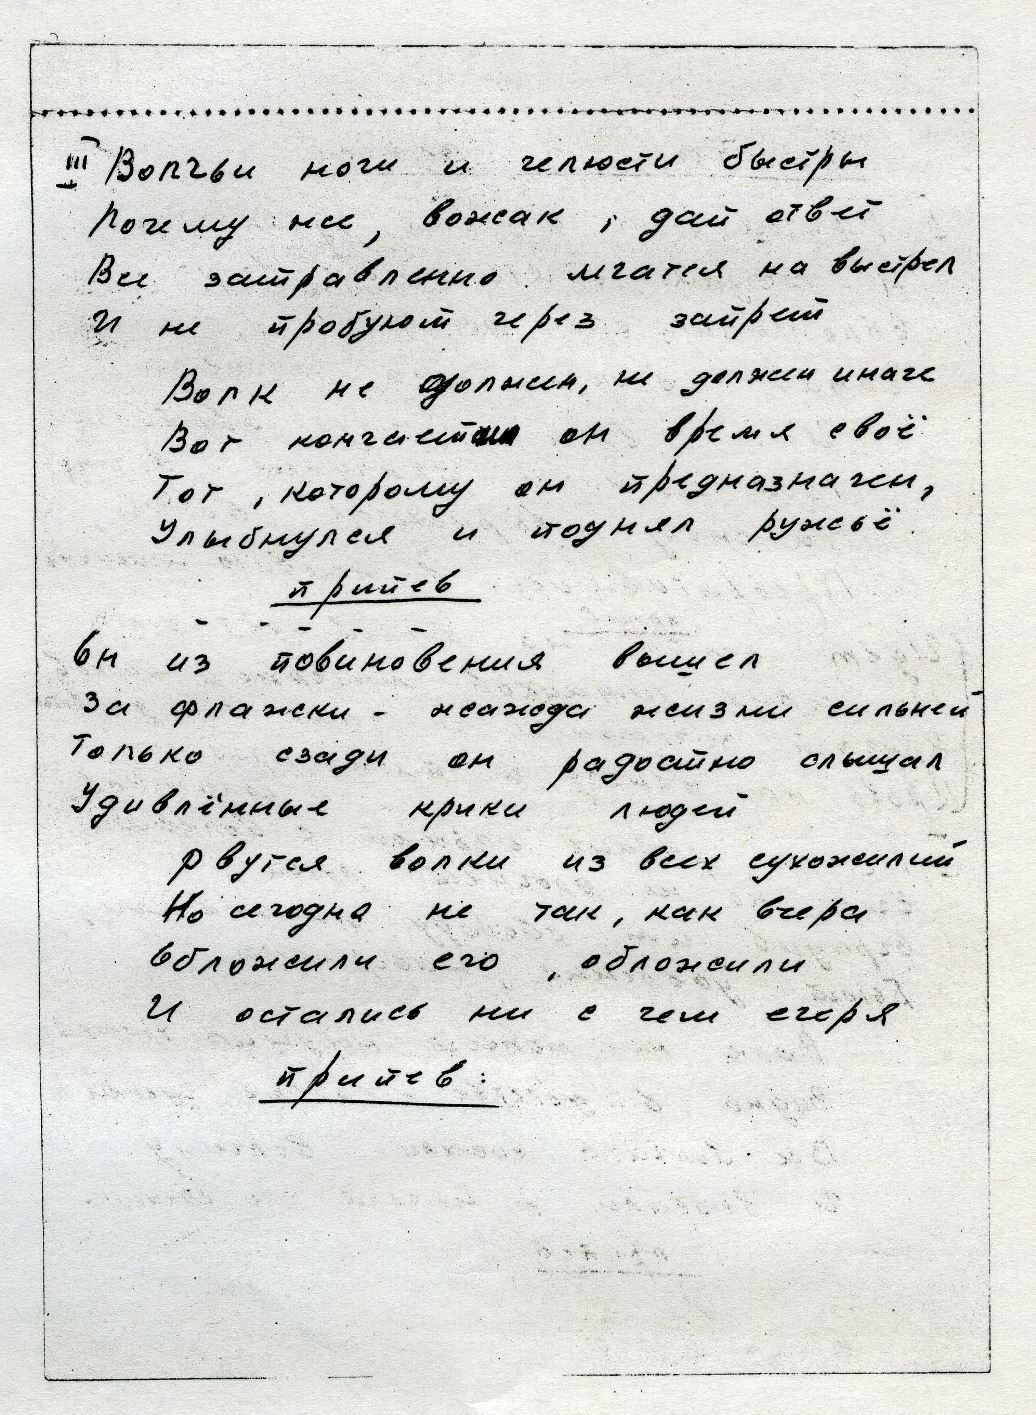 III Волчьи ноги и челюсти быстры
Почему же, вожак, дай ответ
Все затравленно мчатся на выстрел
И не пробуют через запрет
Волк не должен, не должен иначе
Вот кончает он время своё
Тот, которому он предназначен,
Улыбнулся и поднял ружьё.
припев
Он из повиновения вышел
За флажки - жажда жизни сильней
Только сзади он радостно слышал
Удивлённые крики людей
Рвутся волки из всех сухожилий
Но сегодня не так, как вчера
Обложили его, обложили
И остались ни с чем егеря
припев: